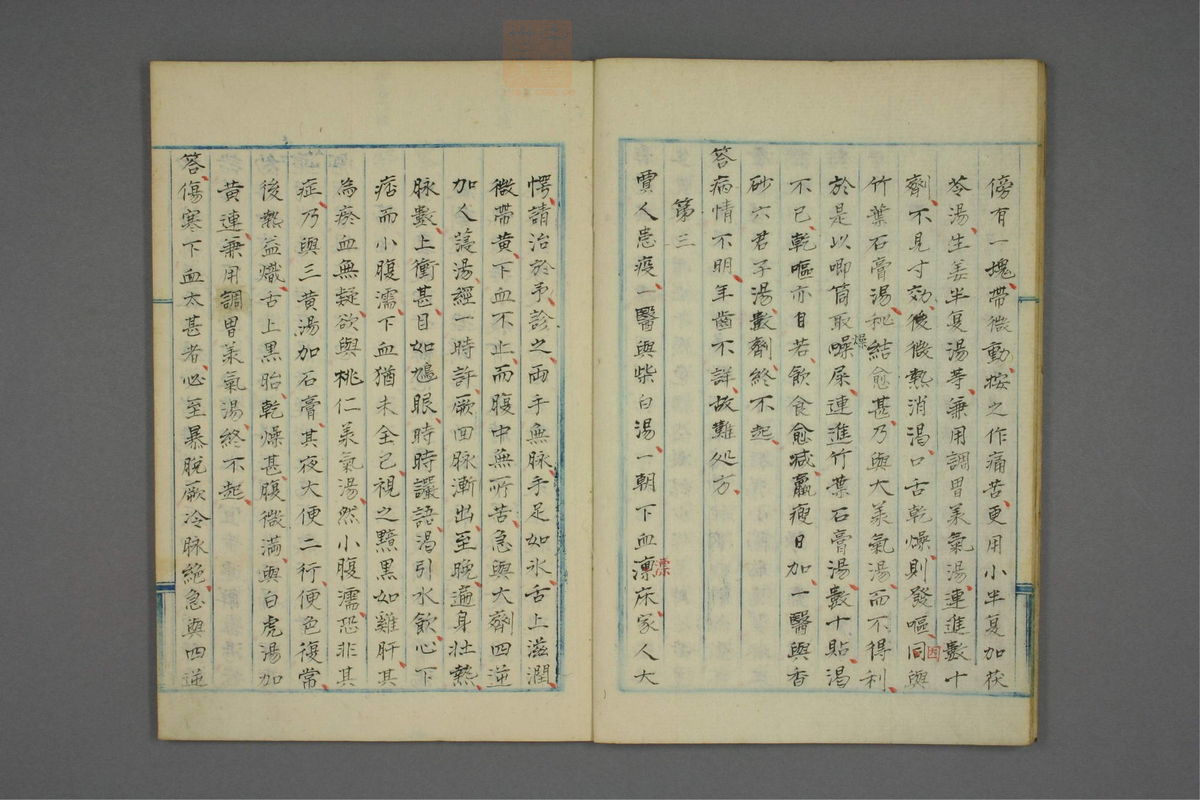 傍有一塊、帶微動、按之作痛苦、更用小半夏加茯
苓湯、生姜半夏湯等、兼用調胃菓氣湯、連進數十
劑、不見寸効、後微熱消渴、口舌乾燥、則發嘔、因與
竹葉石膏湯、秘結愈甚、乃與大菓氣湯、而不得利、
於是以唧筒取燥屎、連進竹葉石膏湯數十貼、渴
不已、乾嘔亦自若、飲食愈减、羸瘦日加、一醫與香
砂六君子湯、數劑、終不起、
答病情不明、年齒不詳、故難処方、
第三
賈人患疫、一醫與柴白湯、一朝下血漂床、家人大
愕、請治於予、診之、両手無脉、手足如氷、舌上滋潤、
微帶黄、下血不止、而腹中無所苦、急與大劑四逆
加人蓡湯、經一時許、厥回脉漸出、至晚、遍身壮熱、
脉數、上衝甚、目如鳩眼、時時譫語、渴引水飲、心下
痞而小腹濡、下血猶未全已、視之黯黒如雞肝、其
為瘀血無疑、欲與桃仁菓氣湯、然小腹濡、恐非其
症、乃與三黄湯加石膏、其夜大便二行、便色復常、
後熱益熾、舌上黒胎、乾燥甚、腹微満、與白虎湯加
黄連、兼用調胃菓氣湯、終不起、
答、傷寒下血太甚者、心至暴脱厥冷脉絶、急與四逆